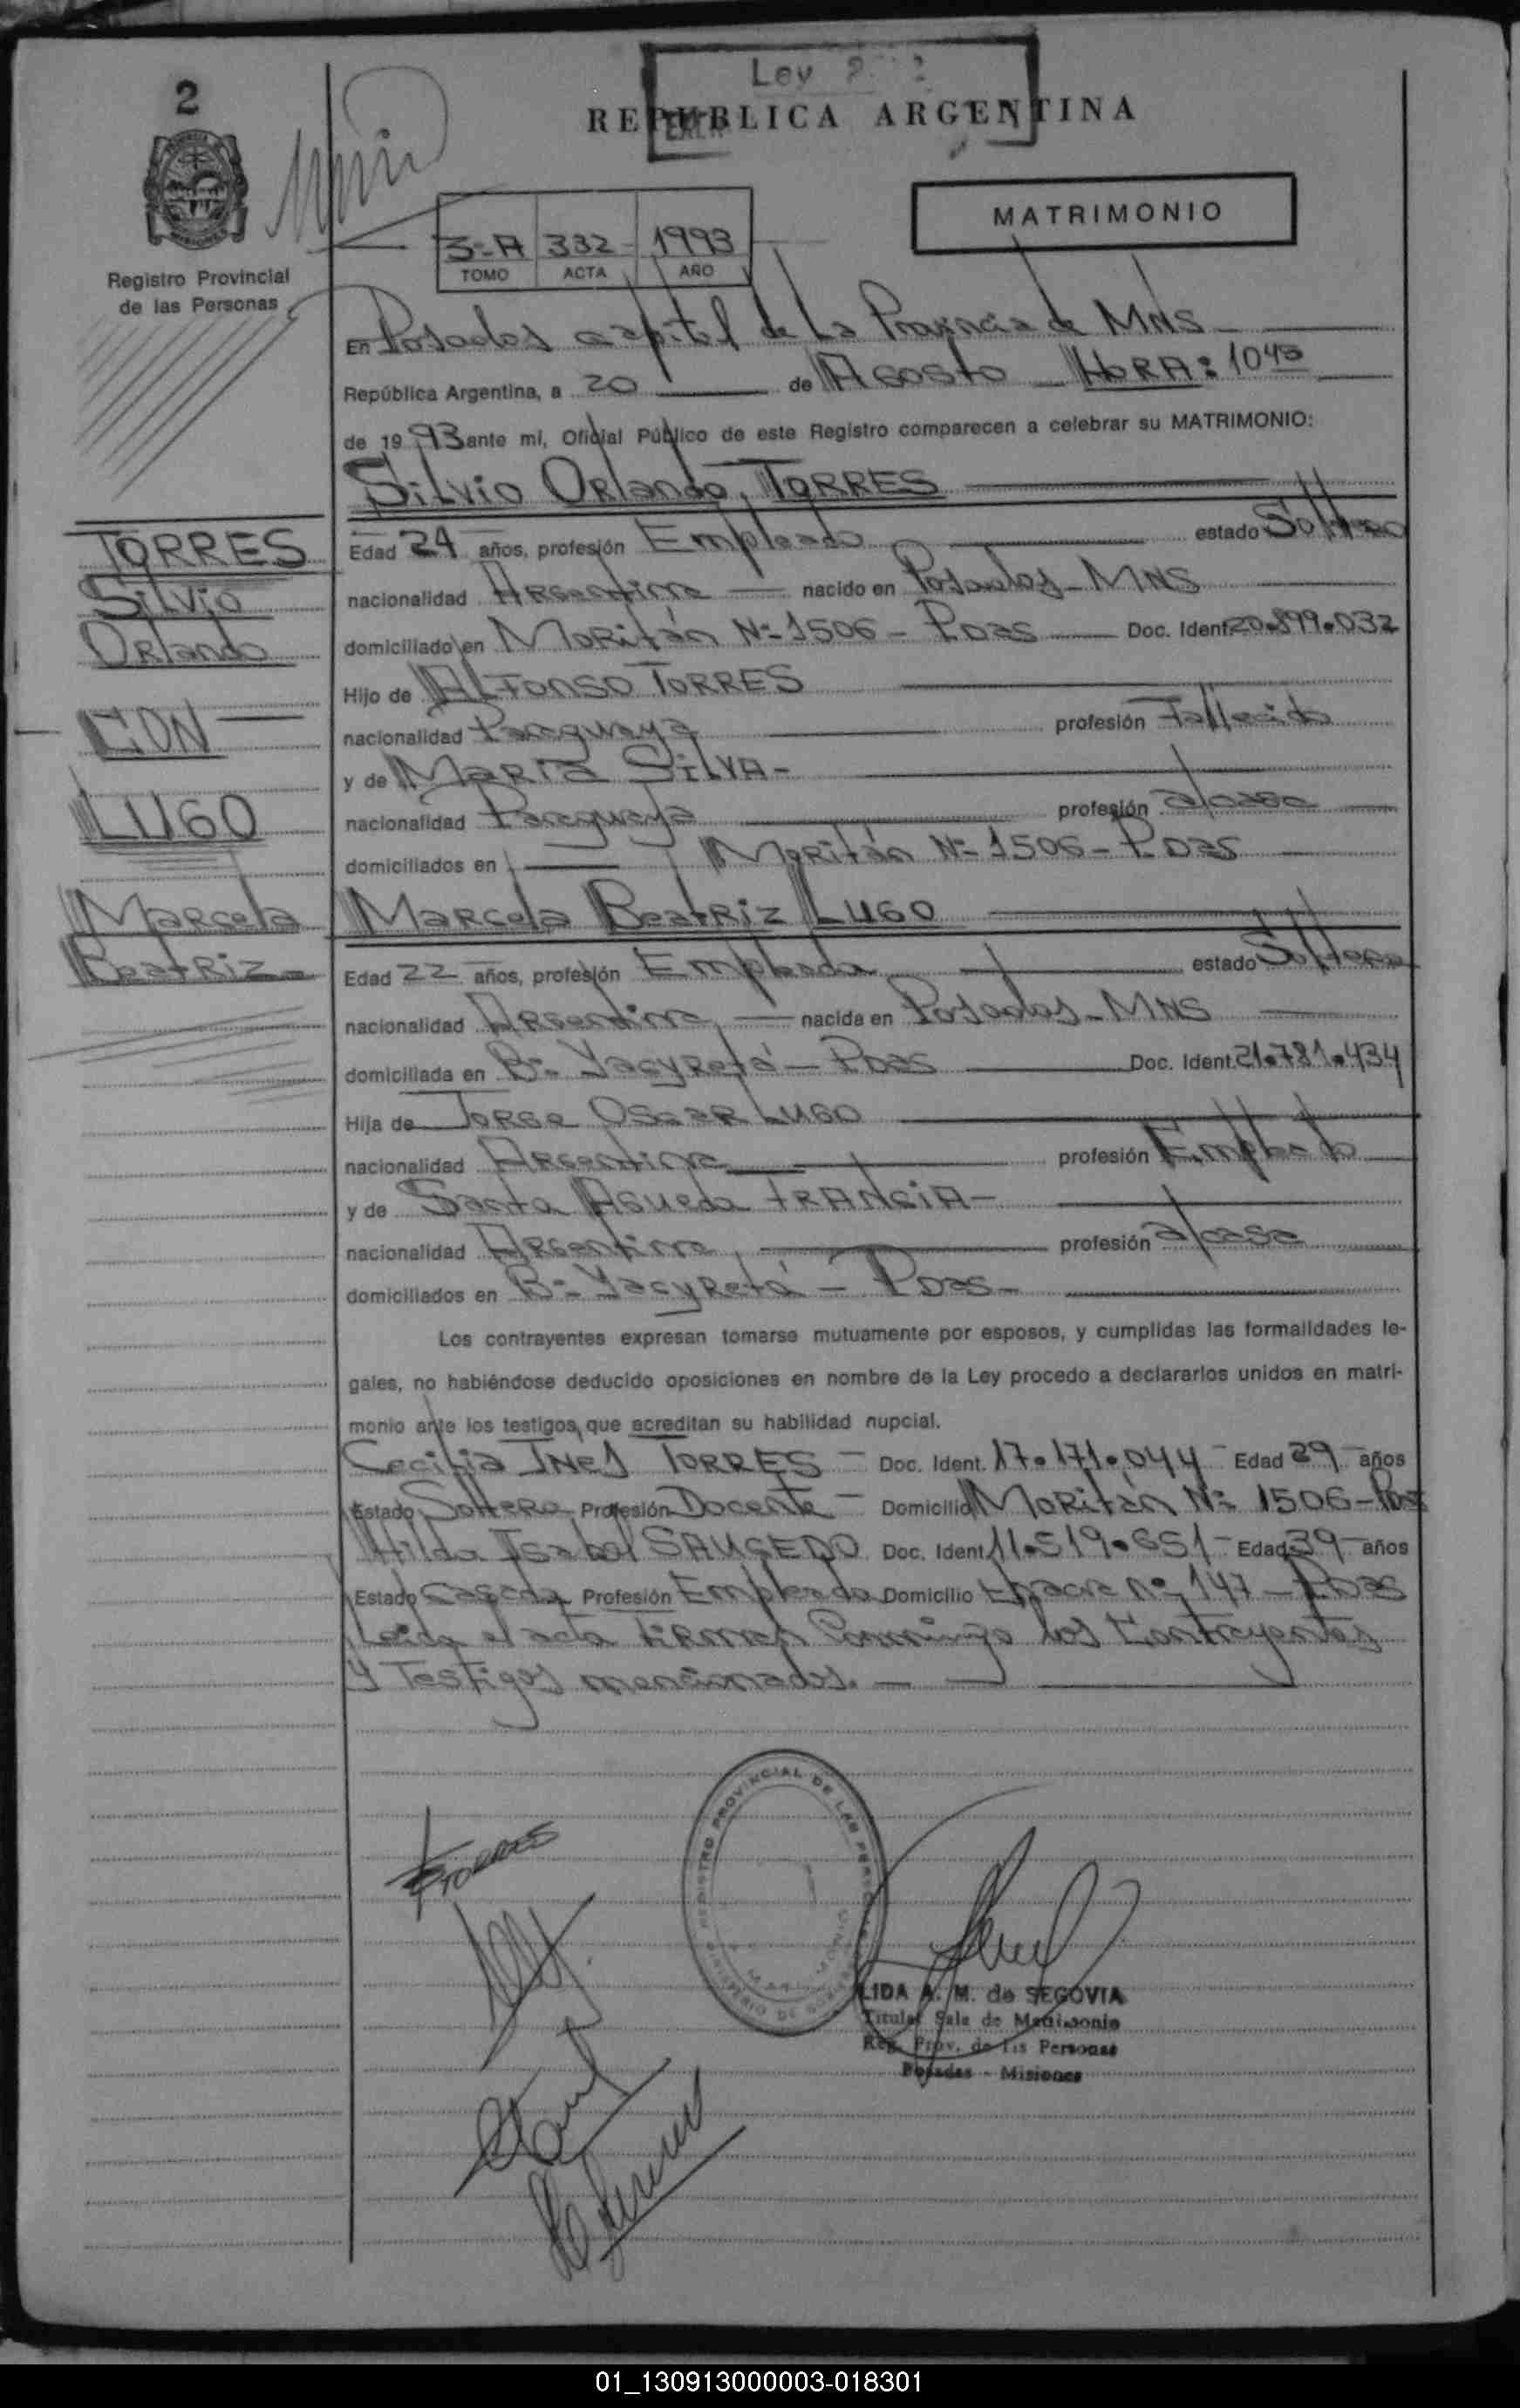 2
Ley
REPUBLICA ARGENTINA
MATRIMONIO
3-A 332- 1993
TOMO ACTA AÑO
Registro Provincial
de las Personas
En Posadas capital de La Provincia de MNS
República Argentina, a 20 de Agosto HORA: 10 45
de 19 93 ante mí, Oficial Público de este Registro comparecen a celebrar su MATRIMONIO:
Silvio Orlando, TORRES
TORRES
Silvio
Orlando
CON
LUGO
Marcela
Beatriz
Edad 24 años, profesión Empleado estado Soltero
nacionalidad Argentina nacido en Posadas-MNS
domiciliado en Moritán N= 1506 - Pdas Doc. Ident. 20.899.032
Hijo de ALFONSO TORRES
nacionalidad Paraguaya profesión Fallecido
y de María SILVA-
nacionalidad Paraguaya profesión a/casa
domiciliados en Moritán N= 1506 - Pdas
Marcela Beatriz LUGO
Edad 22 años, profesión Empleada estado Soltera
nacionalidad Argentina nacida en Posadas-MNS
domiciliada en B= Yacyretá - Pdas Doc. Ident. 21.781.434
Hija de Jorge Oscar LUGO
nacionalidad Argentina profesión Empleado
y de Santa Agueda FRANCIA-
nacionalidad Argentina profesión a/casa
domiciliados en B= Yacyretá - Pdas-
Los contrayentes expresan tomarse mutuamente por esposos, y cumplidas las formalidades le-
gales, no habiéndose deducido oposiciones en nombre de la Ley procedo a declararlos unidos en matri-
monio ante los testigos que acreditan su habilidad nupcial.
Cecilia Ines TORRES - Doc. Ident. 17.171.044 - Edad 29 años
Estado Soltera Profesión Docente - Domicilio Moritán N= 1506-Pdas
Hilda Isabel SAUCEDO Doc. Ident. 11.519.651 - Edad 39 años
Estado Casada Profesión Empleada Domicilio Chacra Nº 147 - Pdas
Leida el acta firman Conmigo los Contrayentes
y Testigos mencionados.
TORRES
REGISTRO PROVINCIAL DE LAS PERSONAS
LIDA A. M. de SEGOVIA
Titular Sala de Matrimonio
Reg. Prov. de las Personas
Posadas - Misiones
01_130913000003-018301